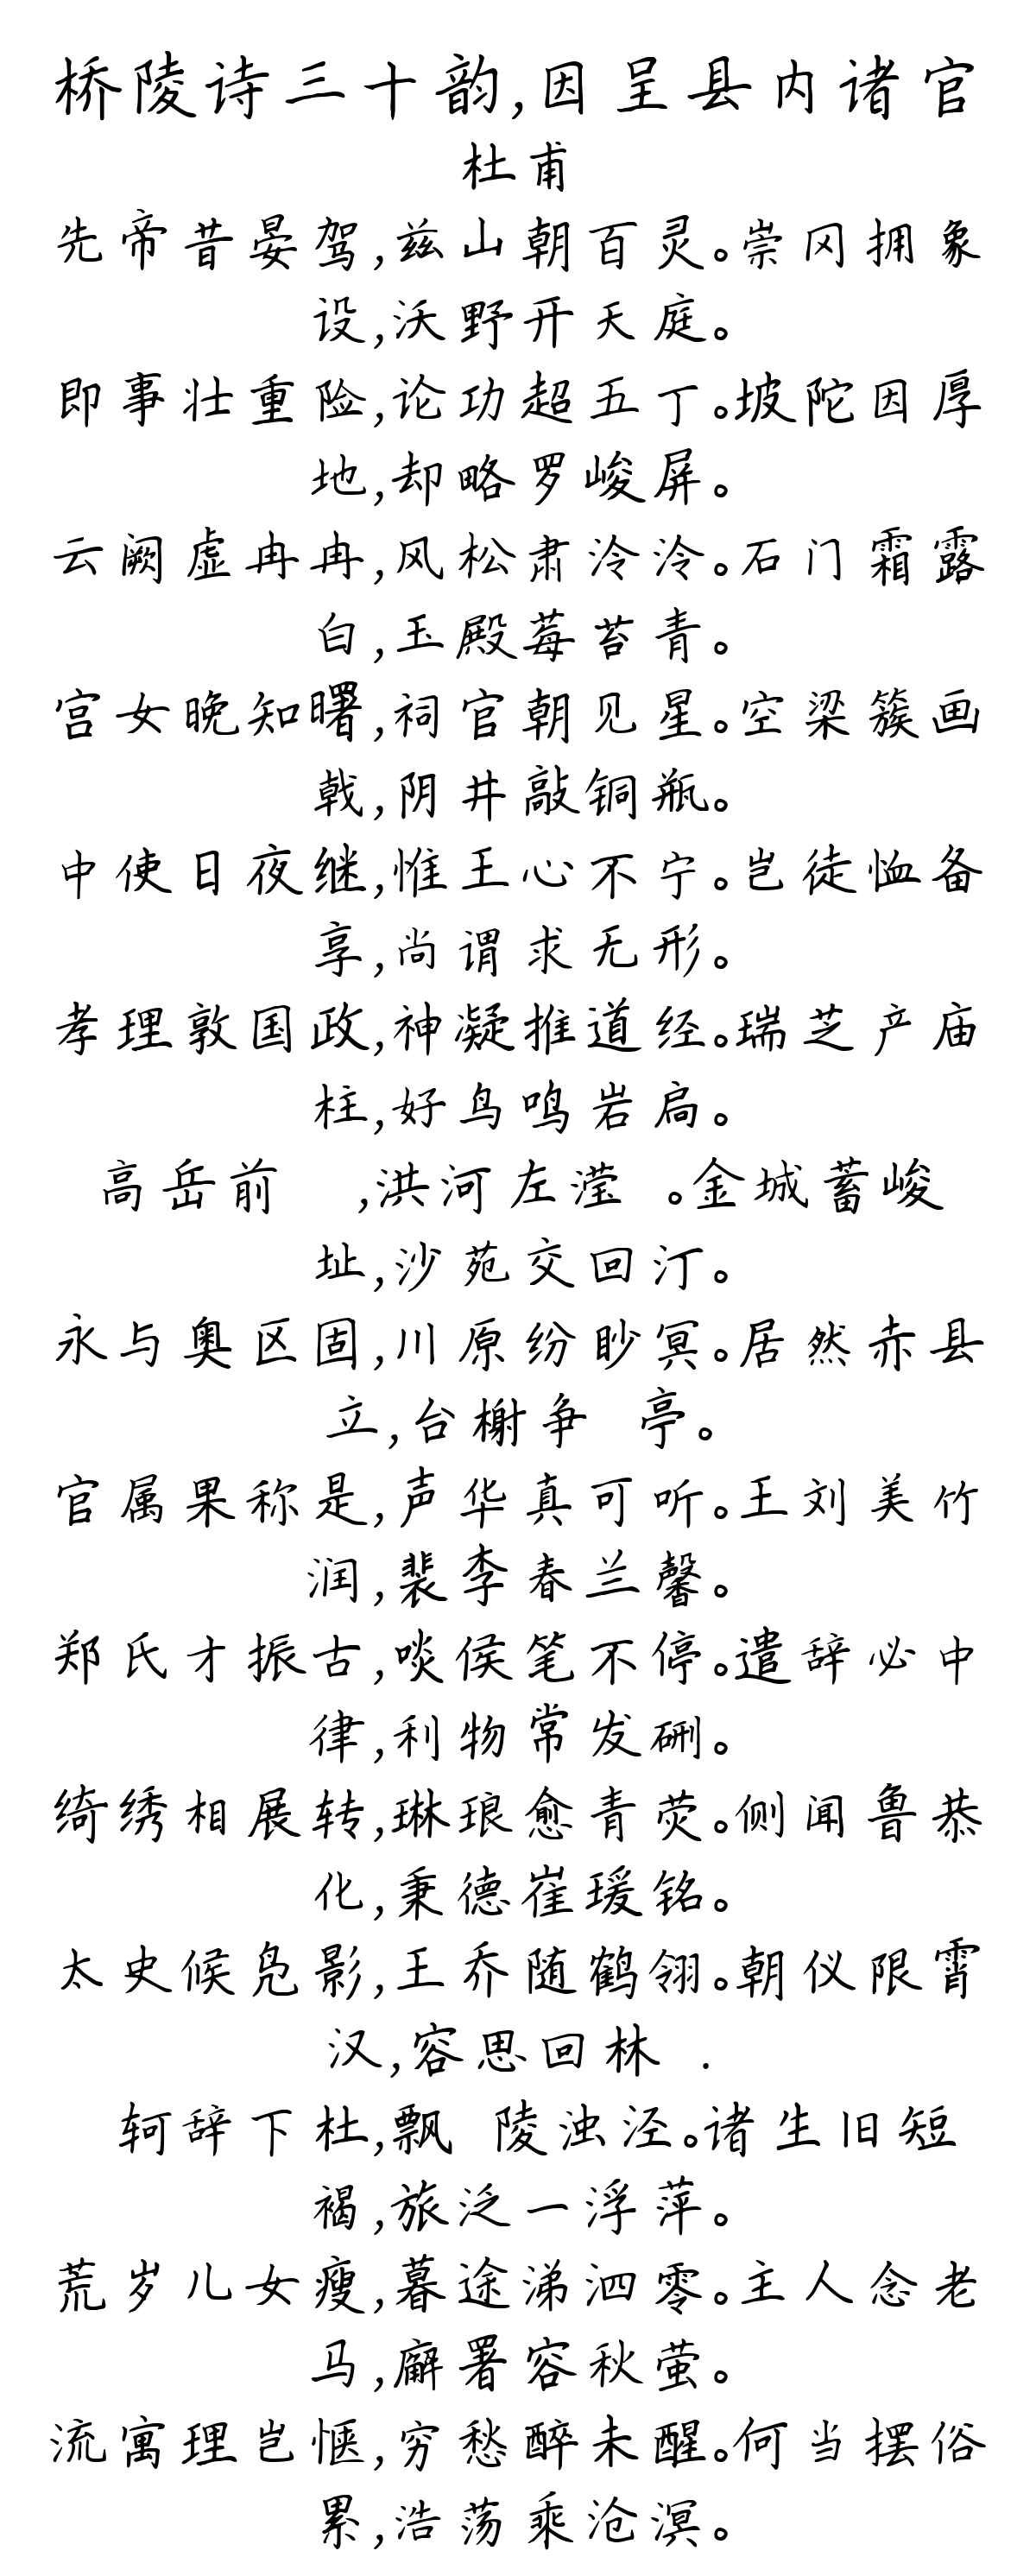 桥陵诗三十韵,因呈县内诸官
杜甫
先帝昔晏驾,兹山朝百灵。崇冈拥象
设,沃野开天庭。
即事壮重险,论功超五丁。坡陀因厚
地,却略罗峻屏。
云阙虚冉冉,风松肃泠泠。石门霜露
白,玉殿莓苔青。
宫女晚知曙,祠官朝见星。空梁簇画
戟,阴井敲铜瓶。
中使日夜继,惟王心不宁。岂徒恤备
享,尚谓求无形。
孝理敦国政,神凝推道经。瑞芝产庙
柱,好鸟鸣岩扃。
高岳前 ,洪河左滢 。金城蓄峻
址,沙苑交回汀。
永与奥区固,川原纷眇冥。居然赤县
立,台榭争 亭。
官属果称是,声华真可听。王刘美竹
润,裴李春兰馨。
郑氏才振古,啖侯笔不停。遣辞必中
律,利物常发硎。
绮绣相展转,琳琅愈青荧。侧闻鲁恭
化,秉德崔瑗铭。
太史候凫影,王乔随鹤翎。朝仪限霄
汉,容思回林 .
轲辞下杜,飘 陵浊泾。诸生旧短
褐,旅泛一浮萍。
荒岁儿女瘦,暮途涕泗零。主人念老
马,廨署容秋萤。
流寓理岂惬,穷愁醉未醒。何当摆俗
累,浩荡乘沧溟。